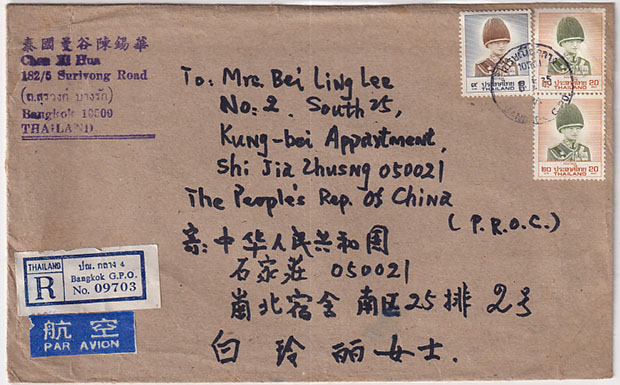 泰國曼谷陳錫華
Chen Xi Hua
182/5 Surivong Road
(ถ.สุรวงค์ บางรัก)
Bangkok 10500
THAILAND
To: Mrs. Bei Ling Lee
No: 2. South 25,
Kung-bei Appartment,
Shi Jia Zhusng 050021
The People's Rep. Of China
(P.R.O.C.)
寄: 中华人民共和国
石家莊 050021
北宿舍 南区25排 2号
白 玲 丽 女士.
ประเทศไทย
THAILAND
๒๐ ประเทศไทย 20
THAILAND
๒๐ ประเทศไทย 20
THAILAND
THAILAND
R
ปณ. กลาง 4
Bangkok G.P.O.
No. 09703
航空
PAR AVION